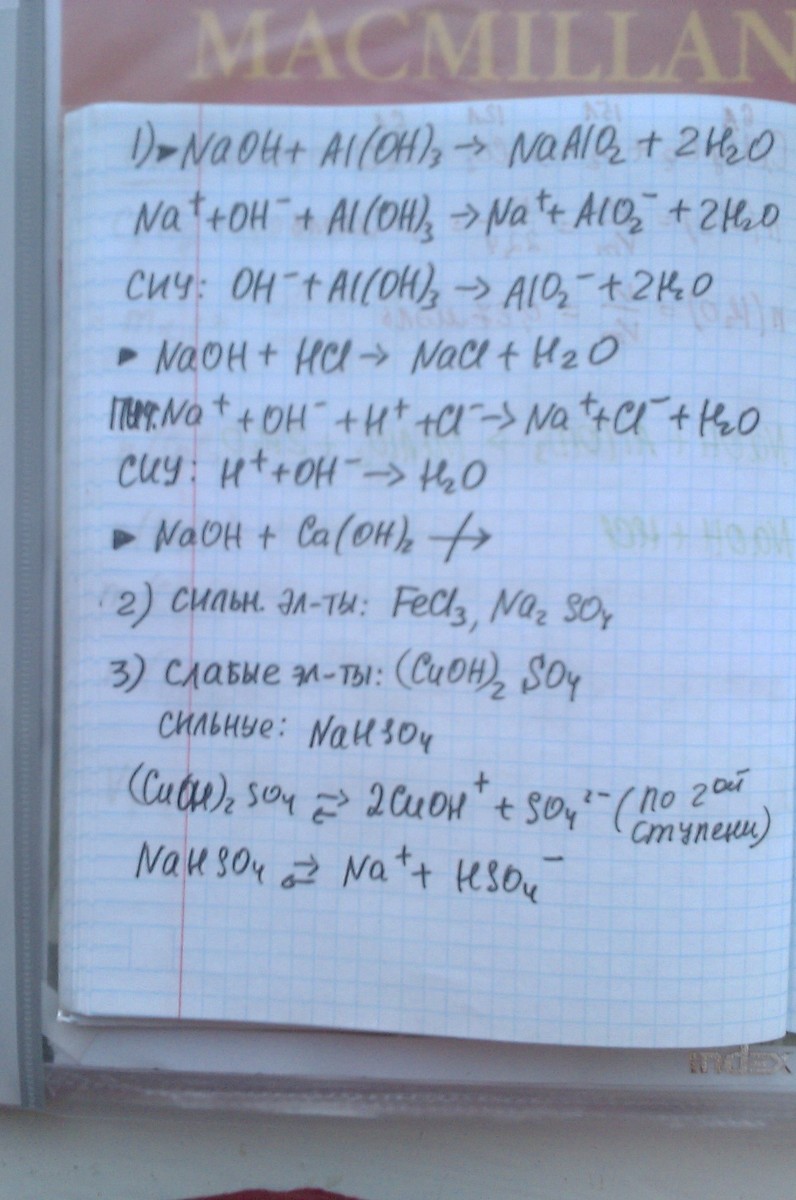 MACMILLAN
1) ▸ NaOH + Al(OH)₃ → NaAlO₂ + 2H₂O
Na⁺ + OH⁻ + Al(OH)₃ → Na⁺ + AlO₂⁻ + 2H₂O
СИУ: OH⁻ + Al(OH)₃ → AlO₂⁻ + 2H₂O
▸ NaOH + HCl → NaCl + H₂O
Na⁺ + OH⁻ + H⁺ + Cl⁻ → Na⁺ + Cl⁻ + H₂O
СИУ: H⁺ + OH⁻ → H₂O
▸ NaOH + Ca(OH)₂ ↛
2) сильн. эл-ты: FeCl₃, Na₂SO₄
3) Слабые эл-ты: (CuOH)₂SO₄
сильные: NaHSO₄
(CuOH)₂SO₄ ⇄ 2CuOH⁺ + SO₄²⁻ (по 2ой
ступени)
NaHSO₄ ⇄ Na⁺ + HSO₄⁻
index